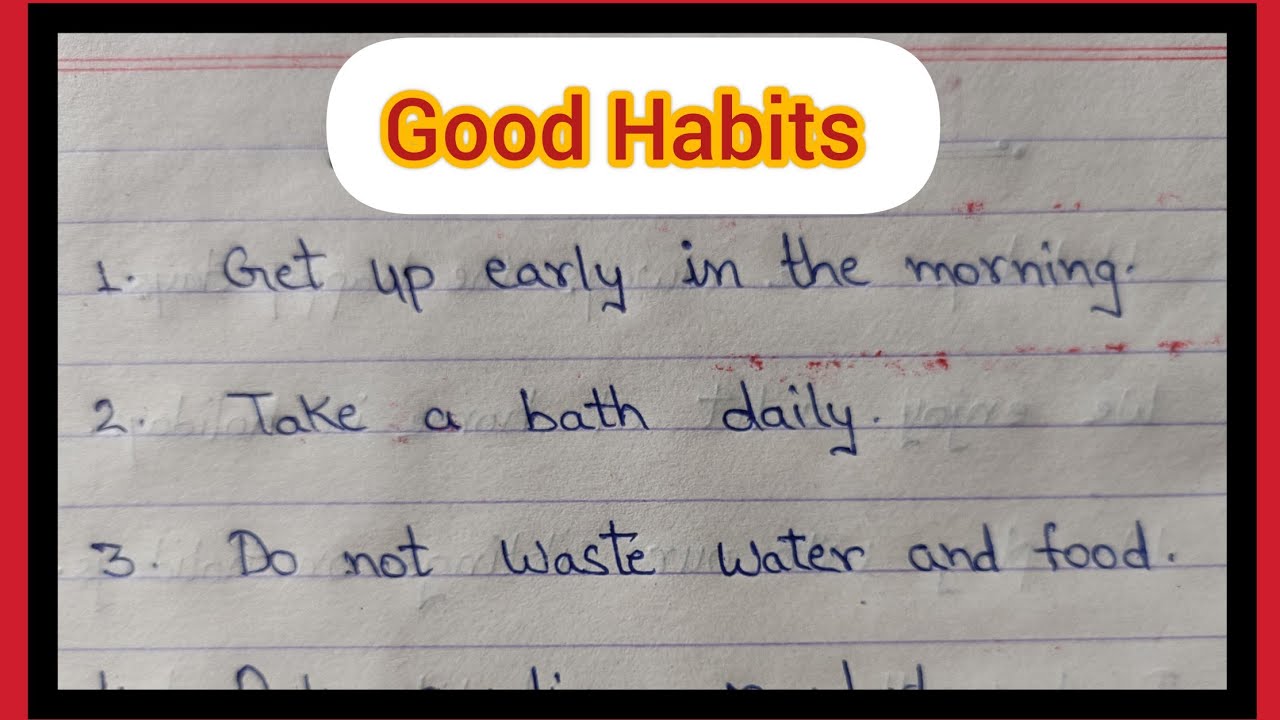 Good Habits
1. Get up early in the morning.
2. Take a bath daily.
3. Do not waste water and food.